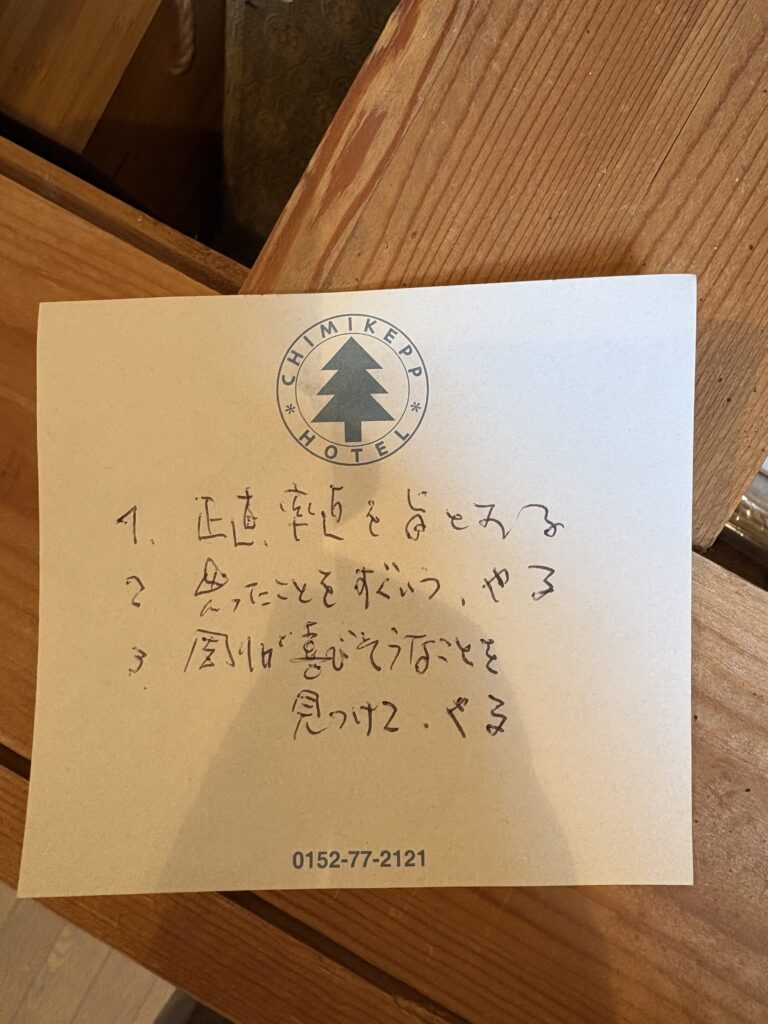 CHIMIKEPP
HOTEL
1. 正直、率直を旨とする
2 思ったことをすぐいう、やる
3 周りが喜びそうなことを
見つけて、やる
0152-77-2121